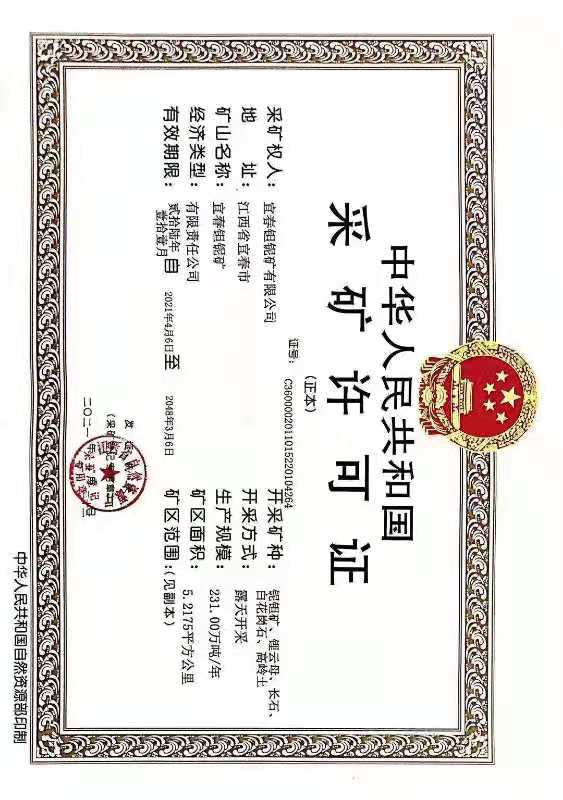 中华人民共和国
采矿许可证
(正本)
证号: C3600002011015220104264
采矿权人: 宜春钽铌矿有限公司
地 址: 江西省宜春市
矿山名称: 宜春钽铌矿
经济类型: 有限责任公司
有效期限: 贰拾陆年壹拾壹月 自 2021年4月6日 至 2048年3月6日
开采矿种: 铌钽矿、锂云母、长石、白花岗石、高岭土
开采方式: 露天开采
生产规模: 231.00万吨/年
矿区面积: 5.2175平方公里
矿区范围: (见副本)
中华人民共和国自然资源部印制